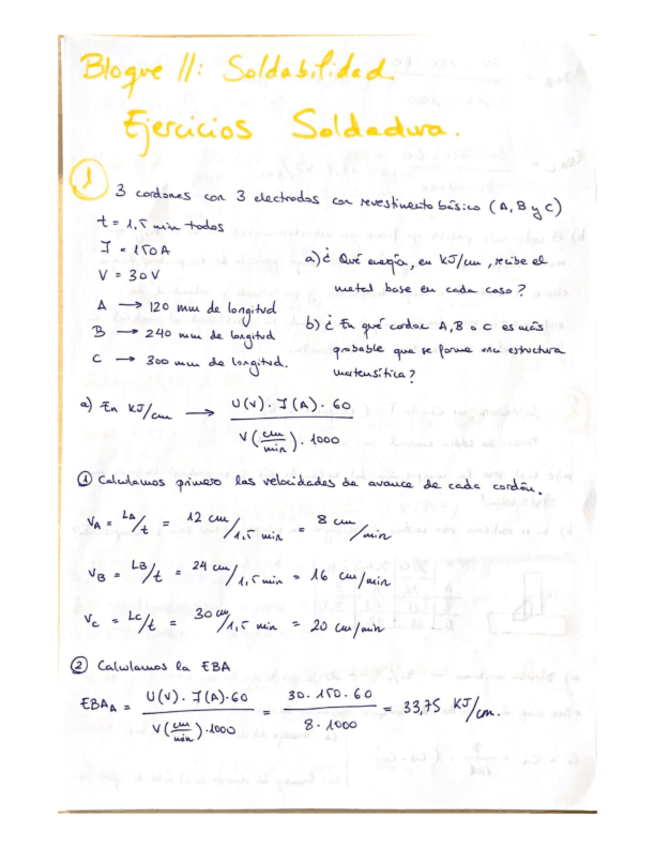 Bloque II: Soldabilidad.
Ejercicios Soldadura.
1
3 cordones con 3 electrodos con revestimiento básico (A, B y C)
t = 1,5 min todos
I = 150 A
V = 30 V
A → 120 mm de longitud
B → 240 mm de longitud
C → 300 mm de longitud.
a) ¿ Qué energía, en KJ/cm, recibe el
metal base en cada caso?
b) ¿ En qué cordón A, B o C es más
probable que se forme una estructura
martensítica?
a) En KJ/cm → U(V) · I(A) · 60 / V(cm/min) · 1000
① Calculamos primero las velocidades de avance de cada cordón.
VA = LA/t = 12 cm/1,5 min = 8 cm/min
VB = LB/t = 24 cm/1,5 min = 16 cm/min
VC = LC/t = 30 cm/1,5 min = 20 cm/min
② Calculamos la EBA
EBAA = U(V) · I(A) · 60 / V(cm/min) · 1000 = 30 · 150 · 60 / 8 · 1000 = 33,75 KJ/cm.